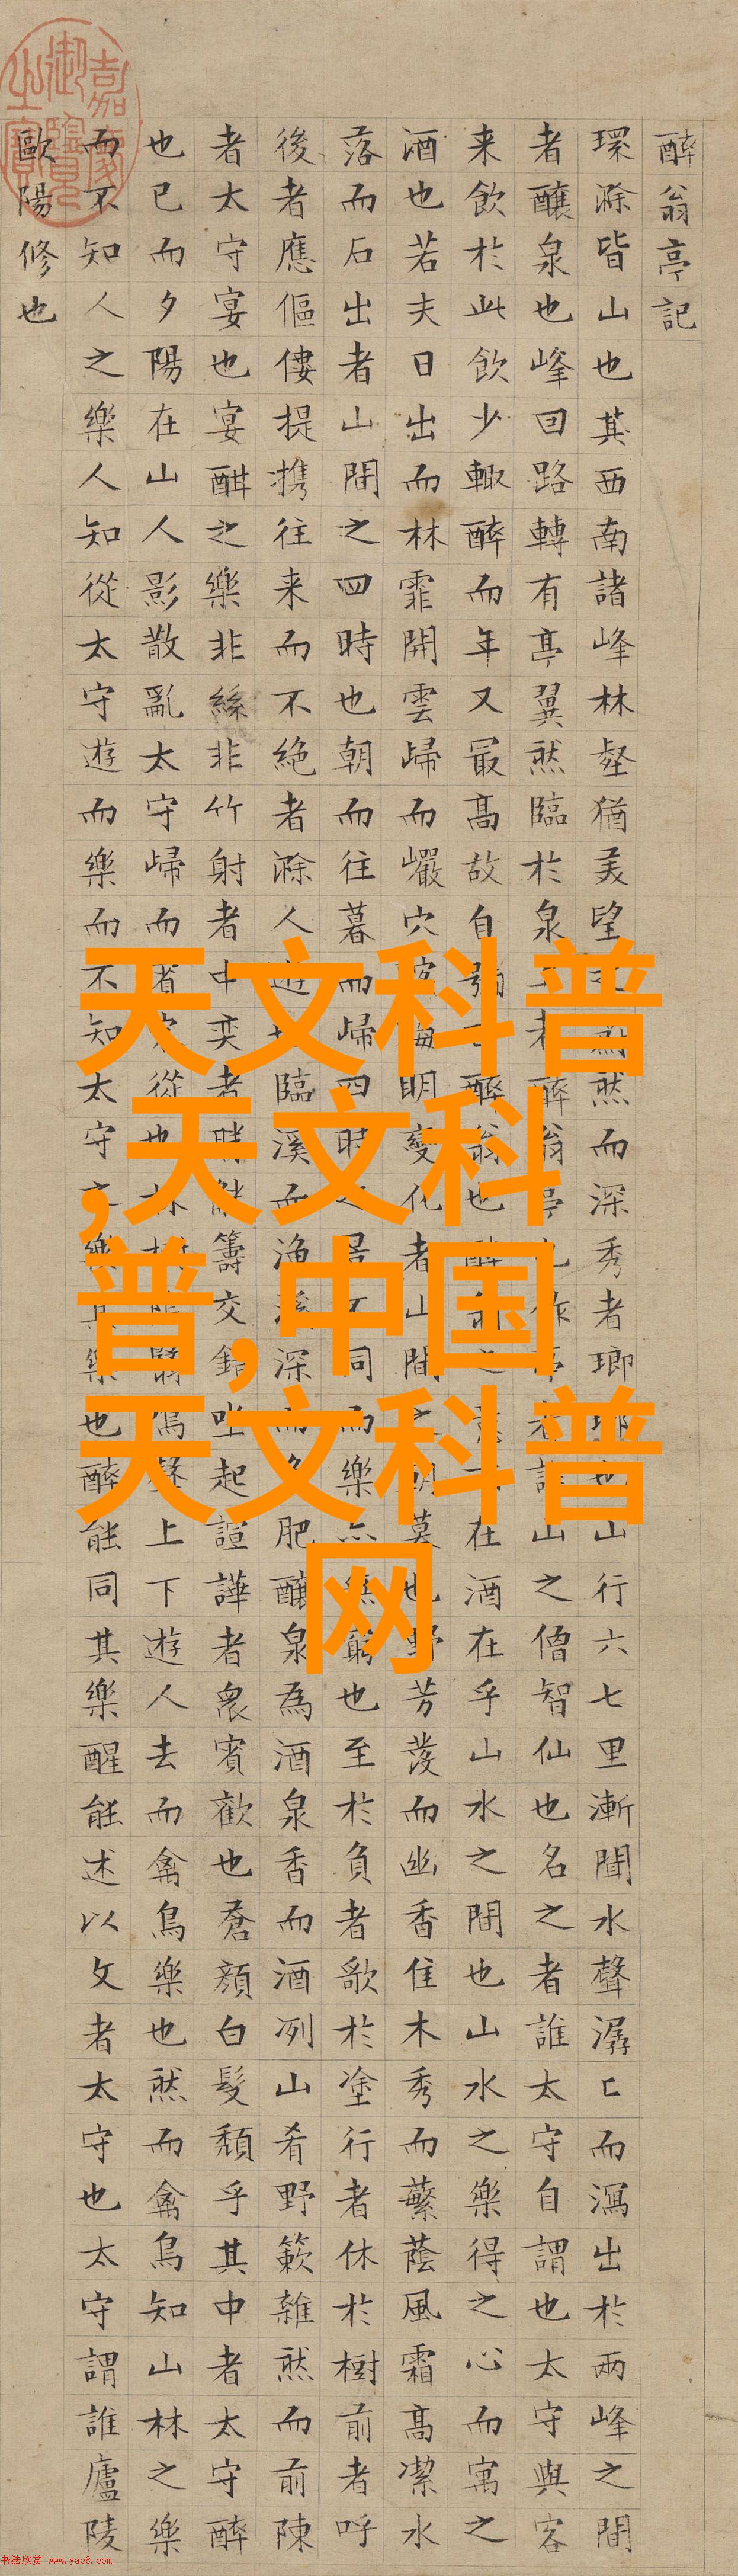 醉翁亭記
環滁皆山也其西南諸峰林壑猶美望然而深秀者瑯也山行六七里漸聞水聲潺〻而瀉出於兩峰之間
者釀泉也峰回路轉有亭翼然臨於泉者醉翁亭也作亭者誰山之僧智仙也名之者誰太守自謂也太守與客
来飲於此飲少輙醉而年又最高故自號醉翁也醉翁之意在酒在乎山水之間也山水之樂得之心而寓之
酒也若夫日出而林霏開雲歸而巖穴晦明變化者山間之朝暮也野芳發而幽香佳木秀而蘩蔭風霜高潔水
落而石出者山間之四時也朝而往暮而歸四時之景不同而樂亦無窮也至於負者歌於塗行者休於樹前者呼
後者應傴僂提攜往来而不絶者滁人遊臨溪而漁溪深而肥釀泉為酒泉香而酒冽山肴野簌雜然而前陳
者太守宴也宴酣之樂非絲非竹射者中奕者勝觥籌交錯坐起諠譁者衆賓歡也蒼顔白髮頹乎其中者太守醉
也已而夕陽在山人影散亂太守歸而從也林翳鳴聲上下遊人去而禽鳥樂也然而禽鳥知山林之樂
而不知人之樂人知從太守遊而樂而不知太守之樂其樂也醉能同其樂醒能述以文者太守也太守謂誰廬陵
歐陽修也
嘉慶御覽之寶
天文科普
,天文科
普,中国
天文科普
网
书法欣赏 www.yac8.com